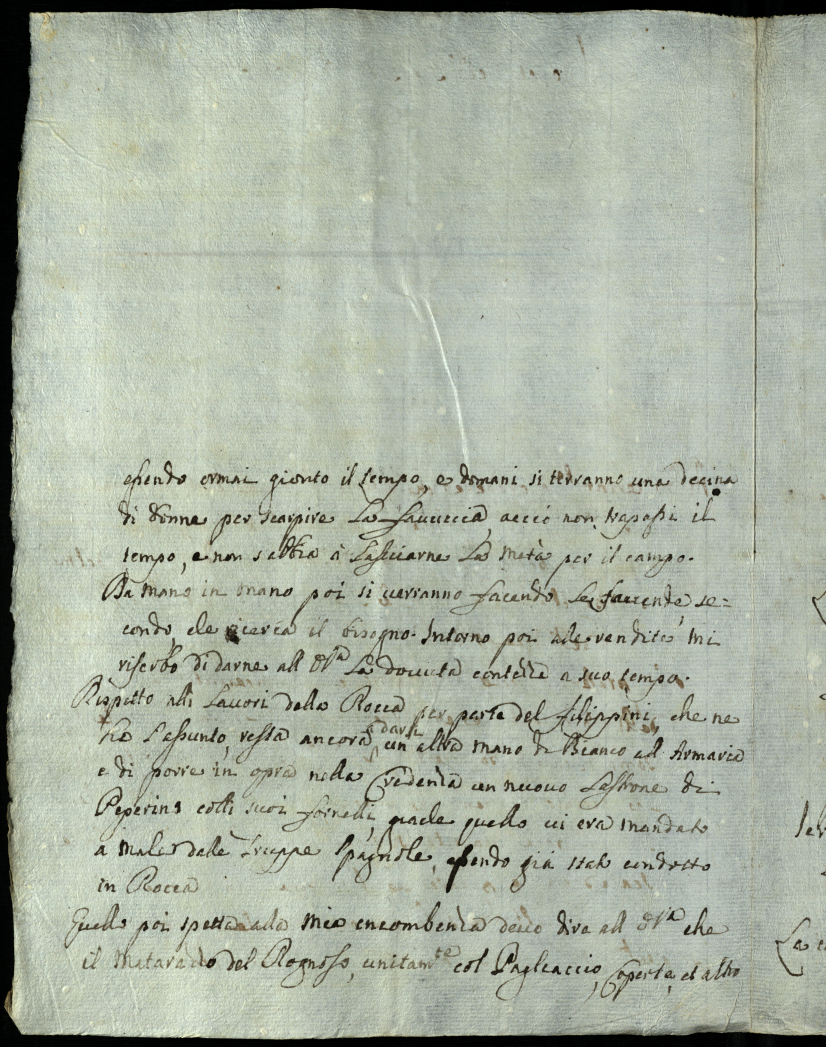 essendo ormai gionto il tempo, e domani si terranno una decina
di donne per scarpire La Favuccia acciò non trapassi il
tempo, e non s'abbia à Lasciarne La metà per il campo.
Da mano in mano poi si verranno facendo le faccende se=
condo che ricerca il bisogno. Intorno poi alle vendite, mi
riserbo di darne all' VS.ra La dovuta contezza a suo tempo.
Rispetto alli Lavori della Rocca per parte del Filippini, che ne
ha L'assunto, resta ancora à dare un altra mano di Bianco all Armaria
e di porre in opra nella Credenza un nuovo Lastrone di
Peperino colli suoi fornelli, giacche quello vi era mandato
a male dalle Truppe Spagnole, essendo già stato condotto
in Rocca
Quello poi spetta alla mia incombenza devo dire all' VS.ra che
il Matarazzo del Rognoso, unitam.te col Pagliaccio, Coperte, et altro
La